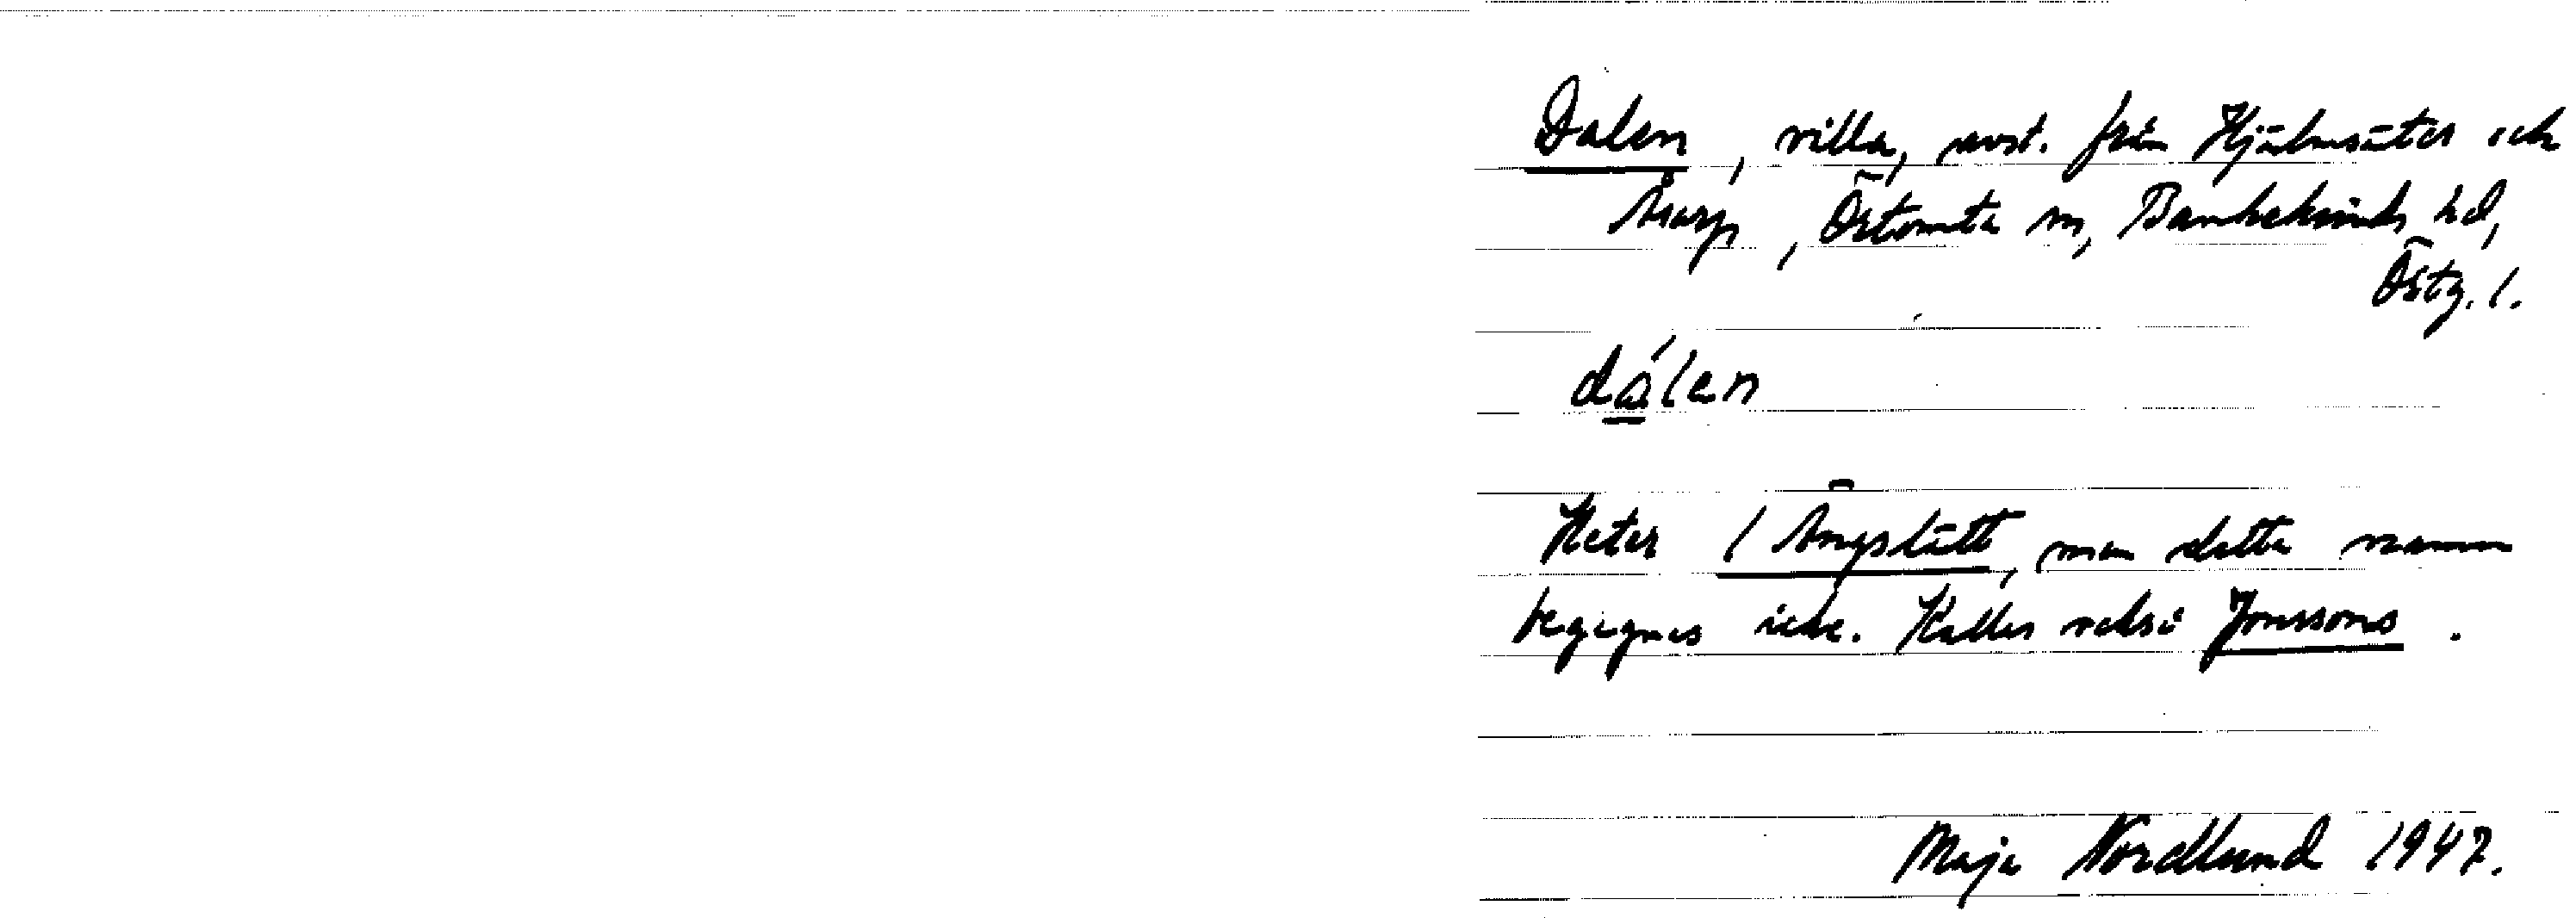 Dalen, villa, avst. från Hjälmsäter och
Åsarp, Östomta sn, Bankekinds hd,
Östg. l.
dálen
Heter / Ängslätt, men detta namn
begagnas icke. Kallas också Jonssons.
Maja Nordlund 1947.